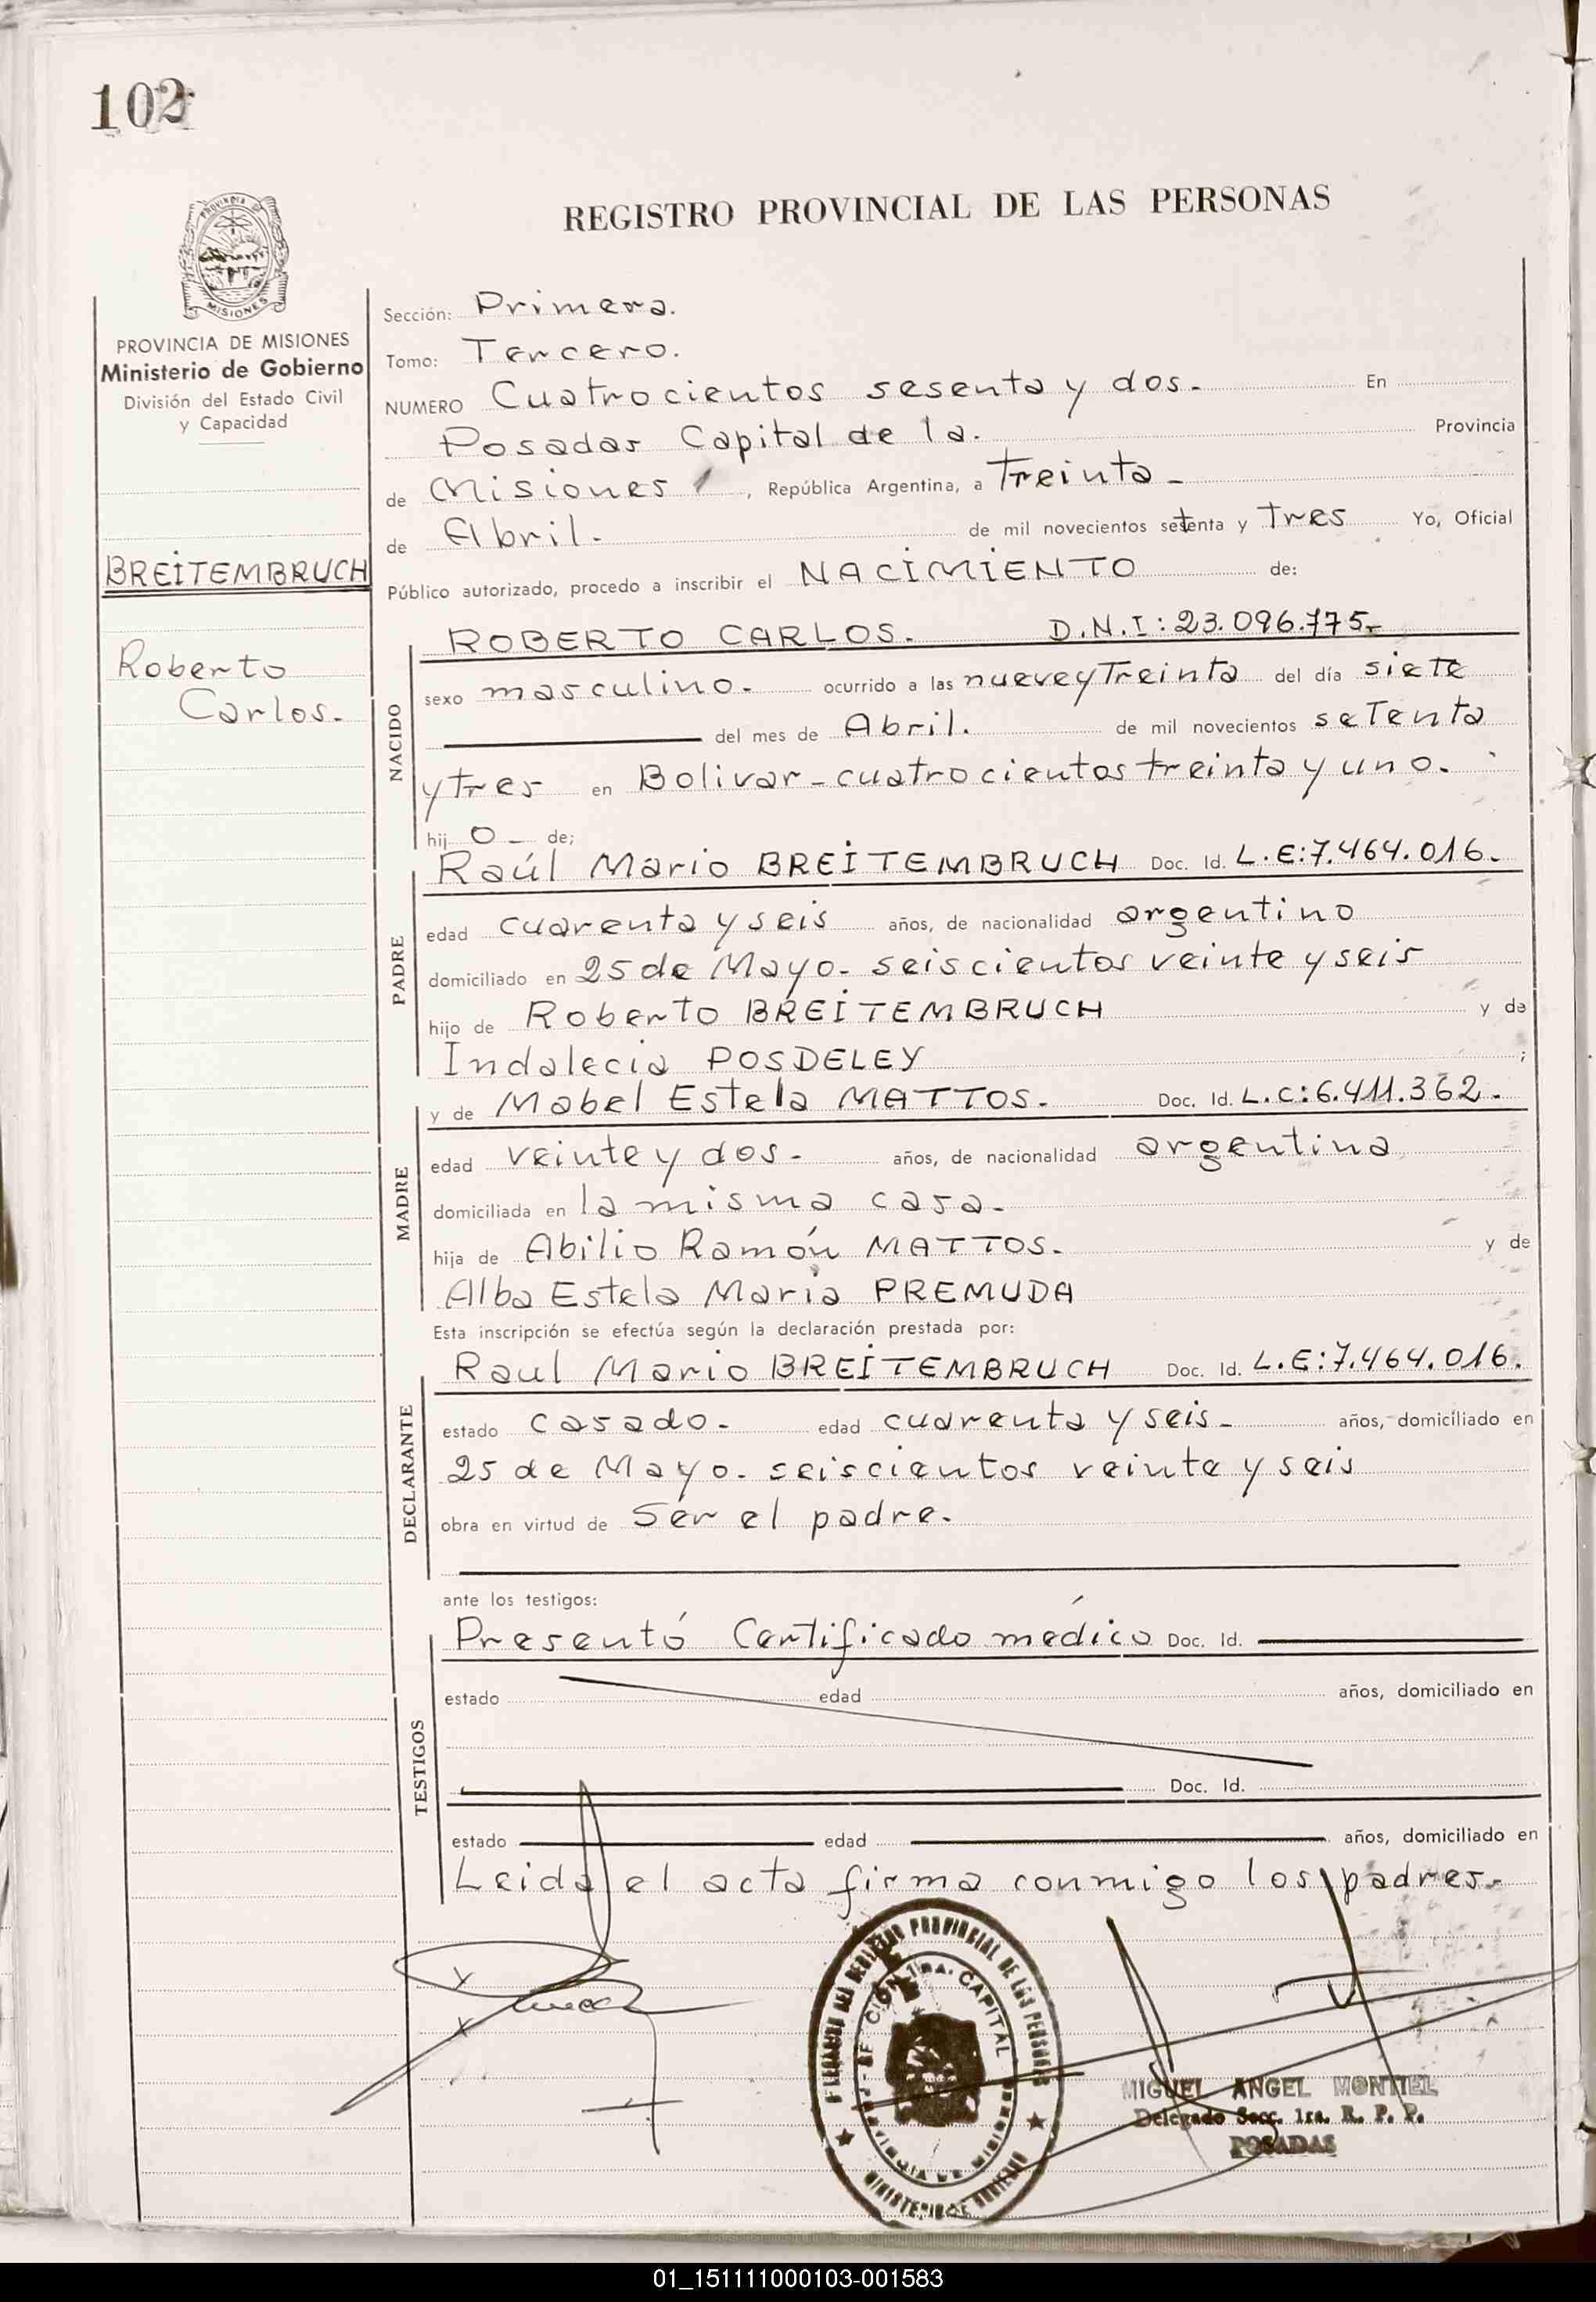 102
REGISTRO PROVINCIAL DE LAS PERSONAS
PROVINCIA
MISIONES
PROVINCIA DE MISIONES
Ministerio de Gobierno
División del Estado Civil
y Capacidad
BREITEMBRUCH
Roberto
Carlos.
Sección: Primera.
Tomo: Tercero.
NUMERO Cuatrocientos sesenta y dos. En
Posadas Capital de la. Provincia
de Misiones, República Argentina, a Treinta
de Abril. de mil novecientos setenta y Tres Yo, Oficial
Público autorizado, procedo a inscribir el NACIMIENTO de:
NACIDO
ROBERTO CARLOS. D.N.I: 23.096.775.
sexo masculino. ocurrido a las nueve y Treinta del día siete
del mes de Abril. de mil novecientos seTenta
y tres en Bolivar - cuatrocientos treinta y uno.
hij o de;
PADRE
Raúl Mario BREITEMBRUCH Doc. Id. L.E:7.464.016.
edad cuarenta y seis años, de nacionalidad argentino
domiciliado en 25 de Mayo. seiscientos veinte y seis
hijo de Roberto BREITEMBRUCH y de
Indalecia POSDELEY ;
MADRE
y de Mabel Estela MATTOS. Doc. Id. L.C:6.411.362.
edad veinte y dos. años, de nacionalidad argentina
domiciliada en la misma casa.
hija de Abilio Ramón MATTOS. y de
Alba Estela Maria PREMUDA
Esta inscripción se efectúa según la declaración prestada por:
DECLARANTE
Raul Mario BREITEMBRUCH Doc. Id. L.E:7.464.016.
estado casado. edad cuarenta y seis años, domiciliado en
25 de Mayo. seiscientos veinte y seis
obra en virtud de Ser el padre.
ante los testigos:
TESTIGOS
Presentó Certificado médico Doc. Id.
estado edad años, domiciliado en
Doc. Id.
estado edad años, domiciliado en
Leida el acta firma conmigo los padres.
REGISTRO PROVINCIAL DE LAS PERSONAS
CAPITAL
MINISTERIO DE GOBIERNO
MIGUEL ANGEL MONTIEL
Delegado Secc. 1ra. R. P. P.
POSADAS
01_151111000103-001583